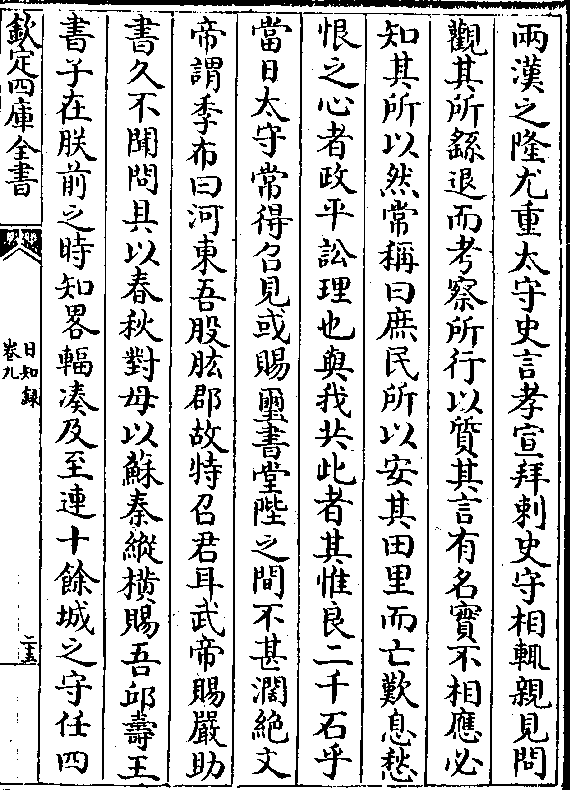 兩漢之隆尤重太守史言孝宣拜刺史守相輒親見問
觀其所繇退而考察所行以質其言有名實不相應必
知其所以然常稱曰庶民所以安其田里而亡歎息愁
恨之心者政平訟理也與我共此者其惟良二千石乎
當日太守常得召見或賜璽書堂陛之間不甚濶絶文
帝謂季布曰河東吾股肱郡故特召君耳武帝賜嚴助
書久不聞問具以春秋對毋以蘇秦縱橫賜吾邱壽王
書子在朕前之時知畧輻凑及至連十餘城之守任四
欽定四庫全書
日知錄
卷九
二五